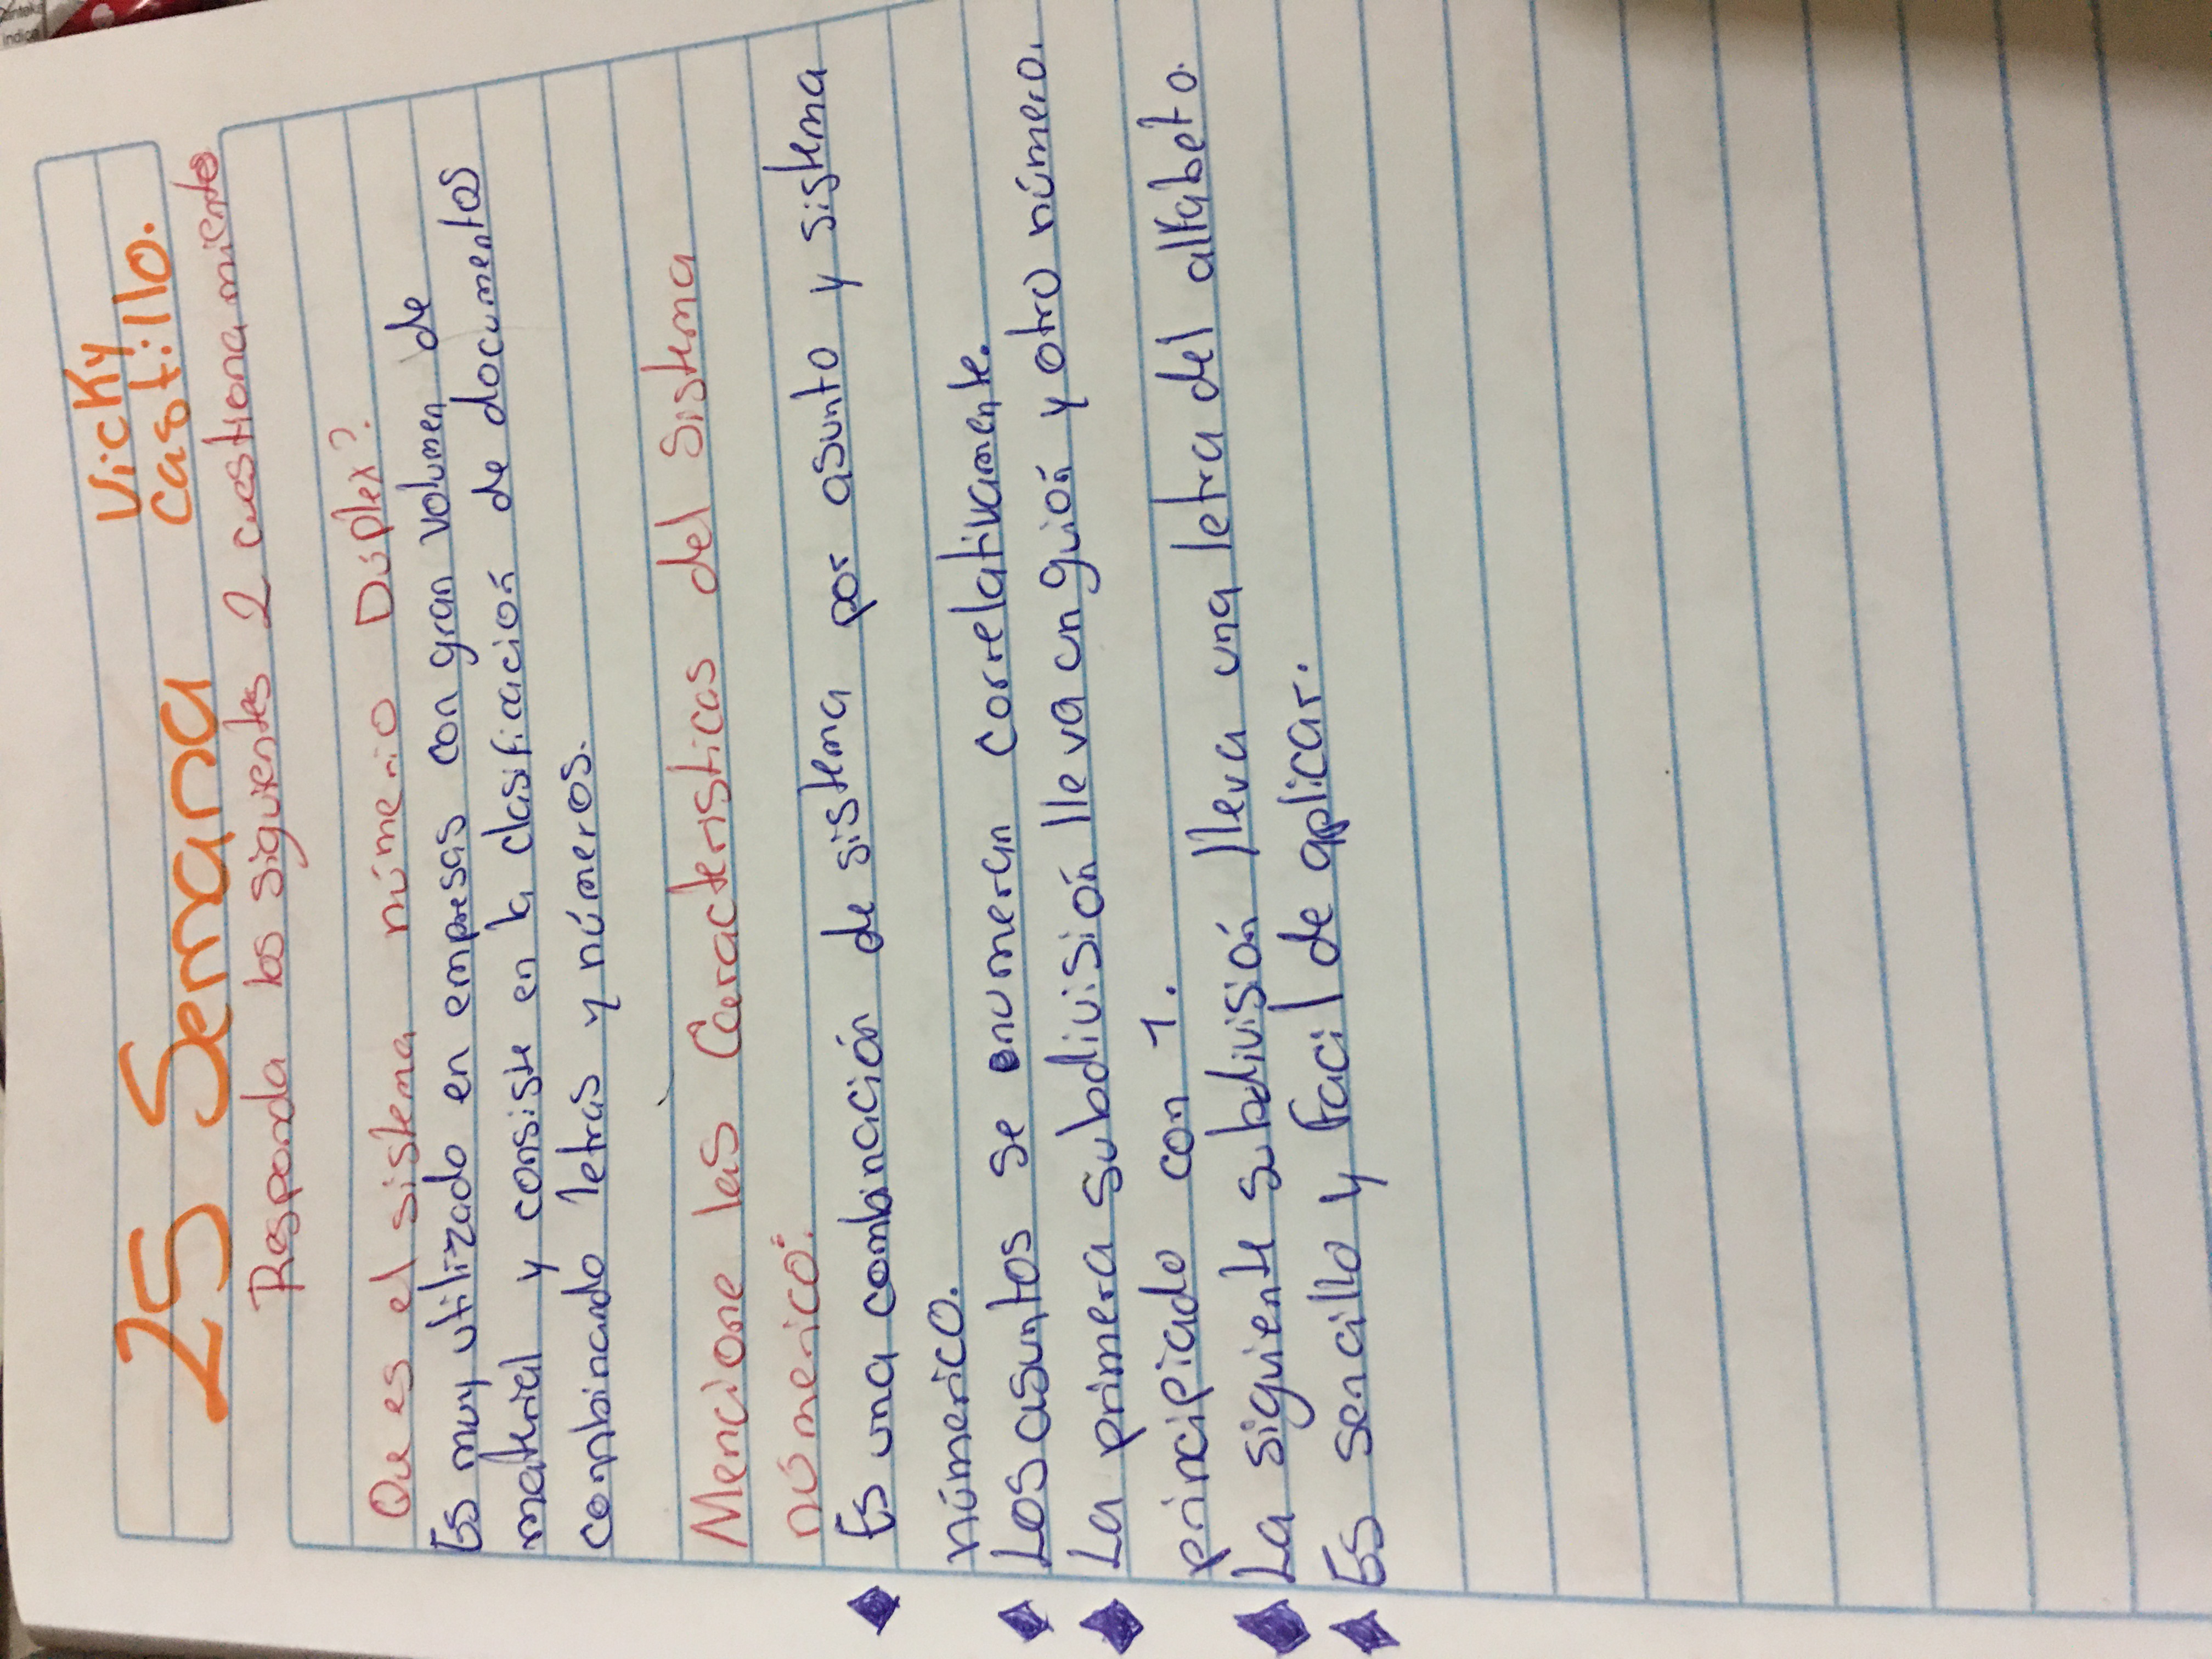 25 Semana Vicky Castillo.
Responda los siguientes 2 cuestionamientos
Que es el sistema número Dúplex?
Es muy utilizado en empresas con gran volumen de
material y consiste en la clasificación de documentos
conbinando letras y números.
Mencione las Caracteristicas del Sistema
númerico:
Es una combinación de sistema por asunto y sistema
númerico.
Los asuntos se enumeran correlativamente.
La primera subdivisión lleva un guión y otro número.
principiado con 1.
La siguiente subdivisión lleva una letra del alfabeto.
Es sencillo y facil de aplicar.